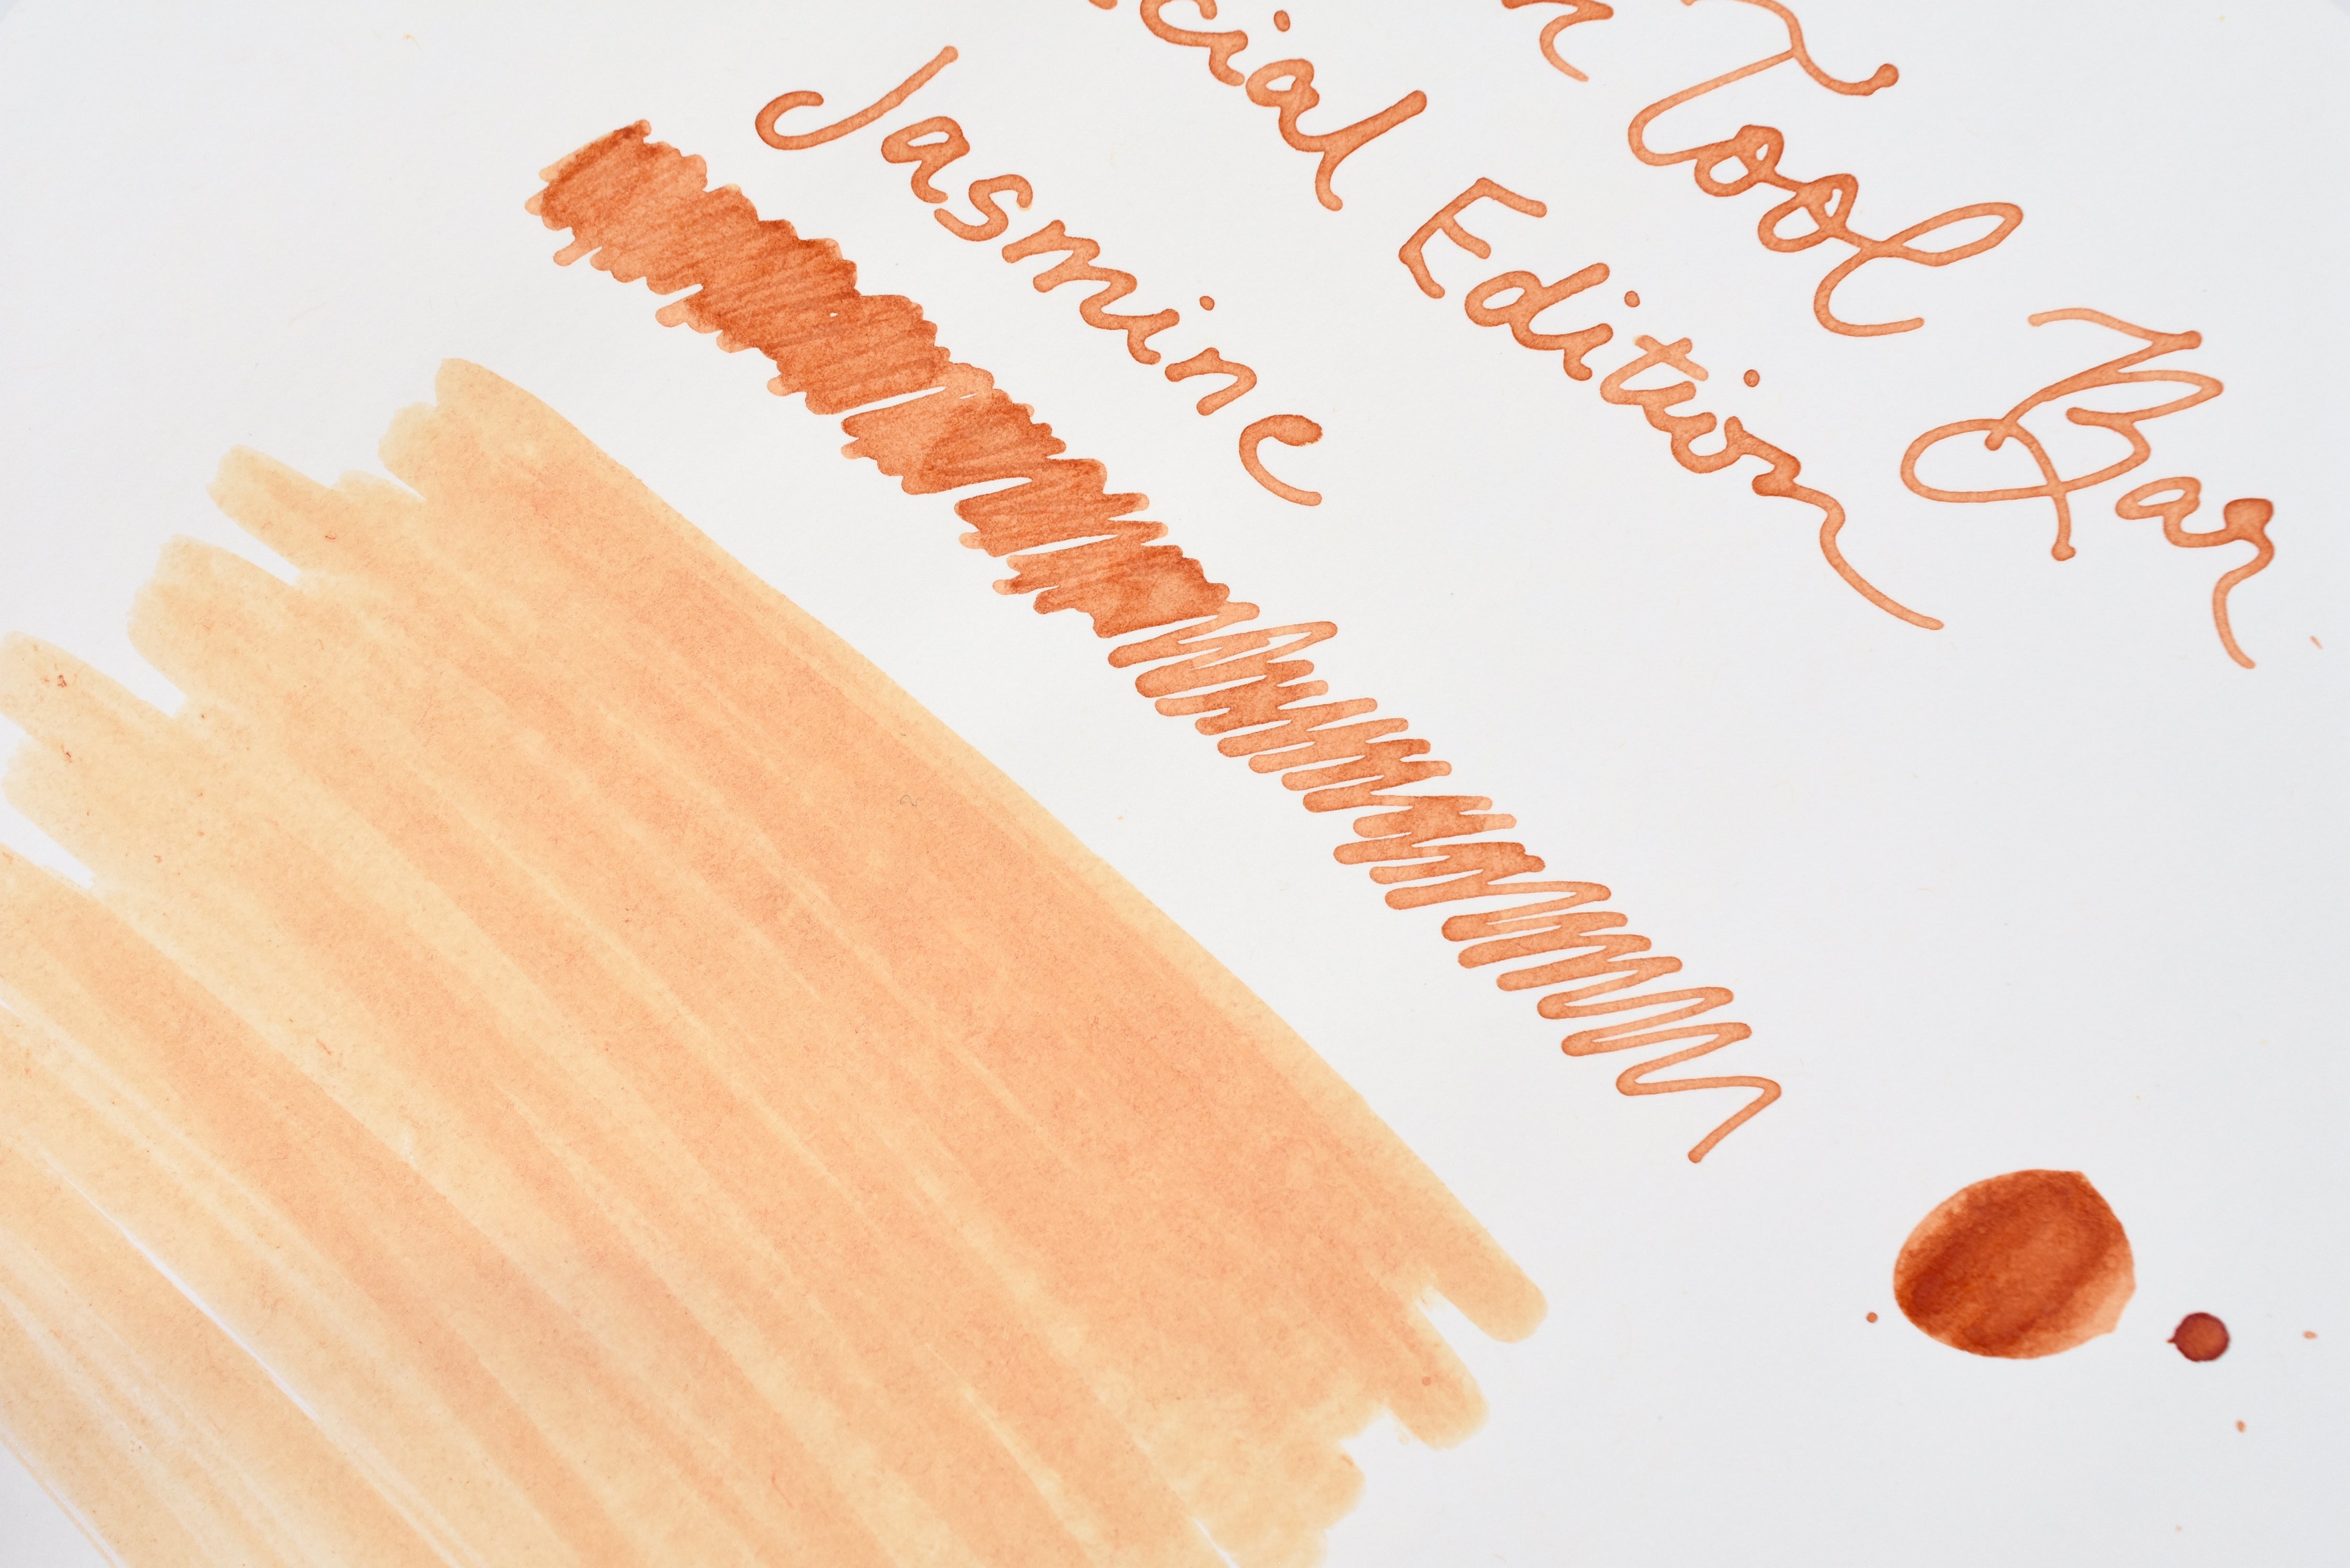 n Tool Bar
cial Edition
Jasmine